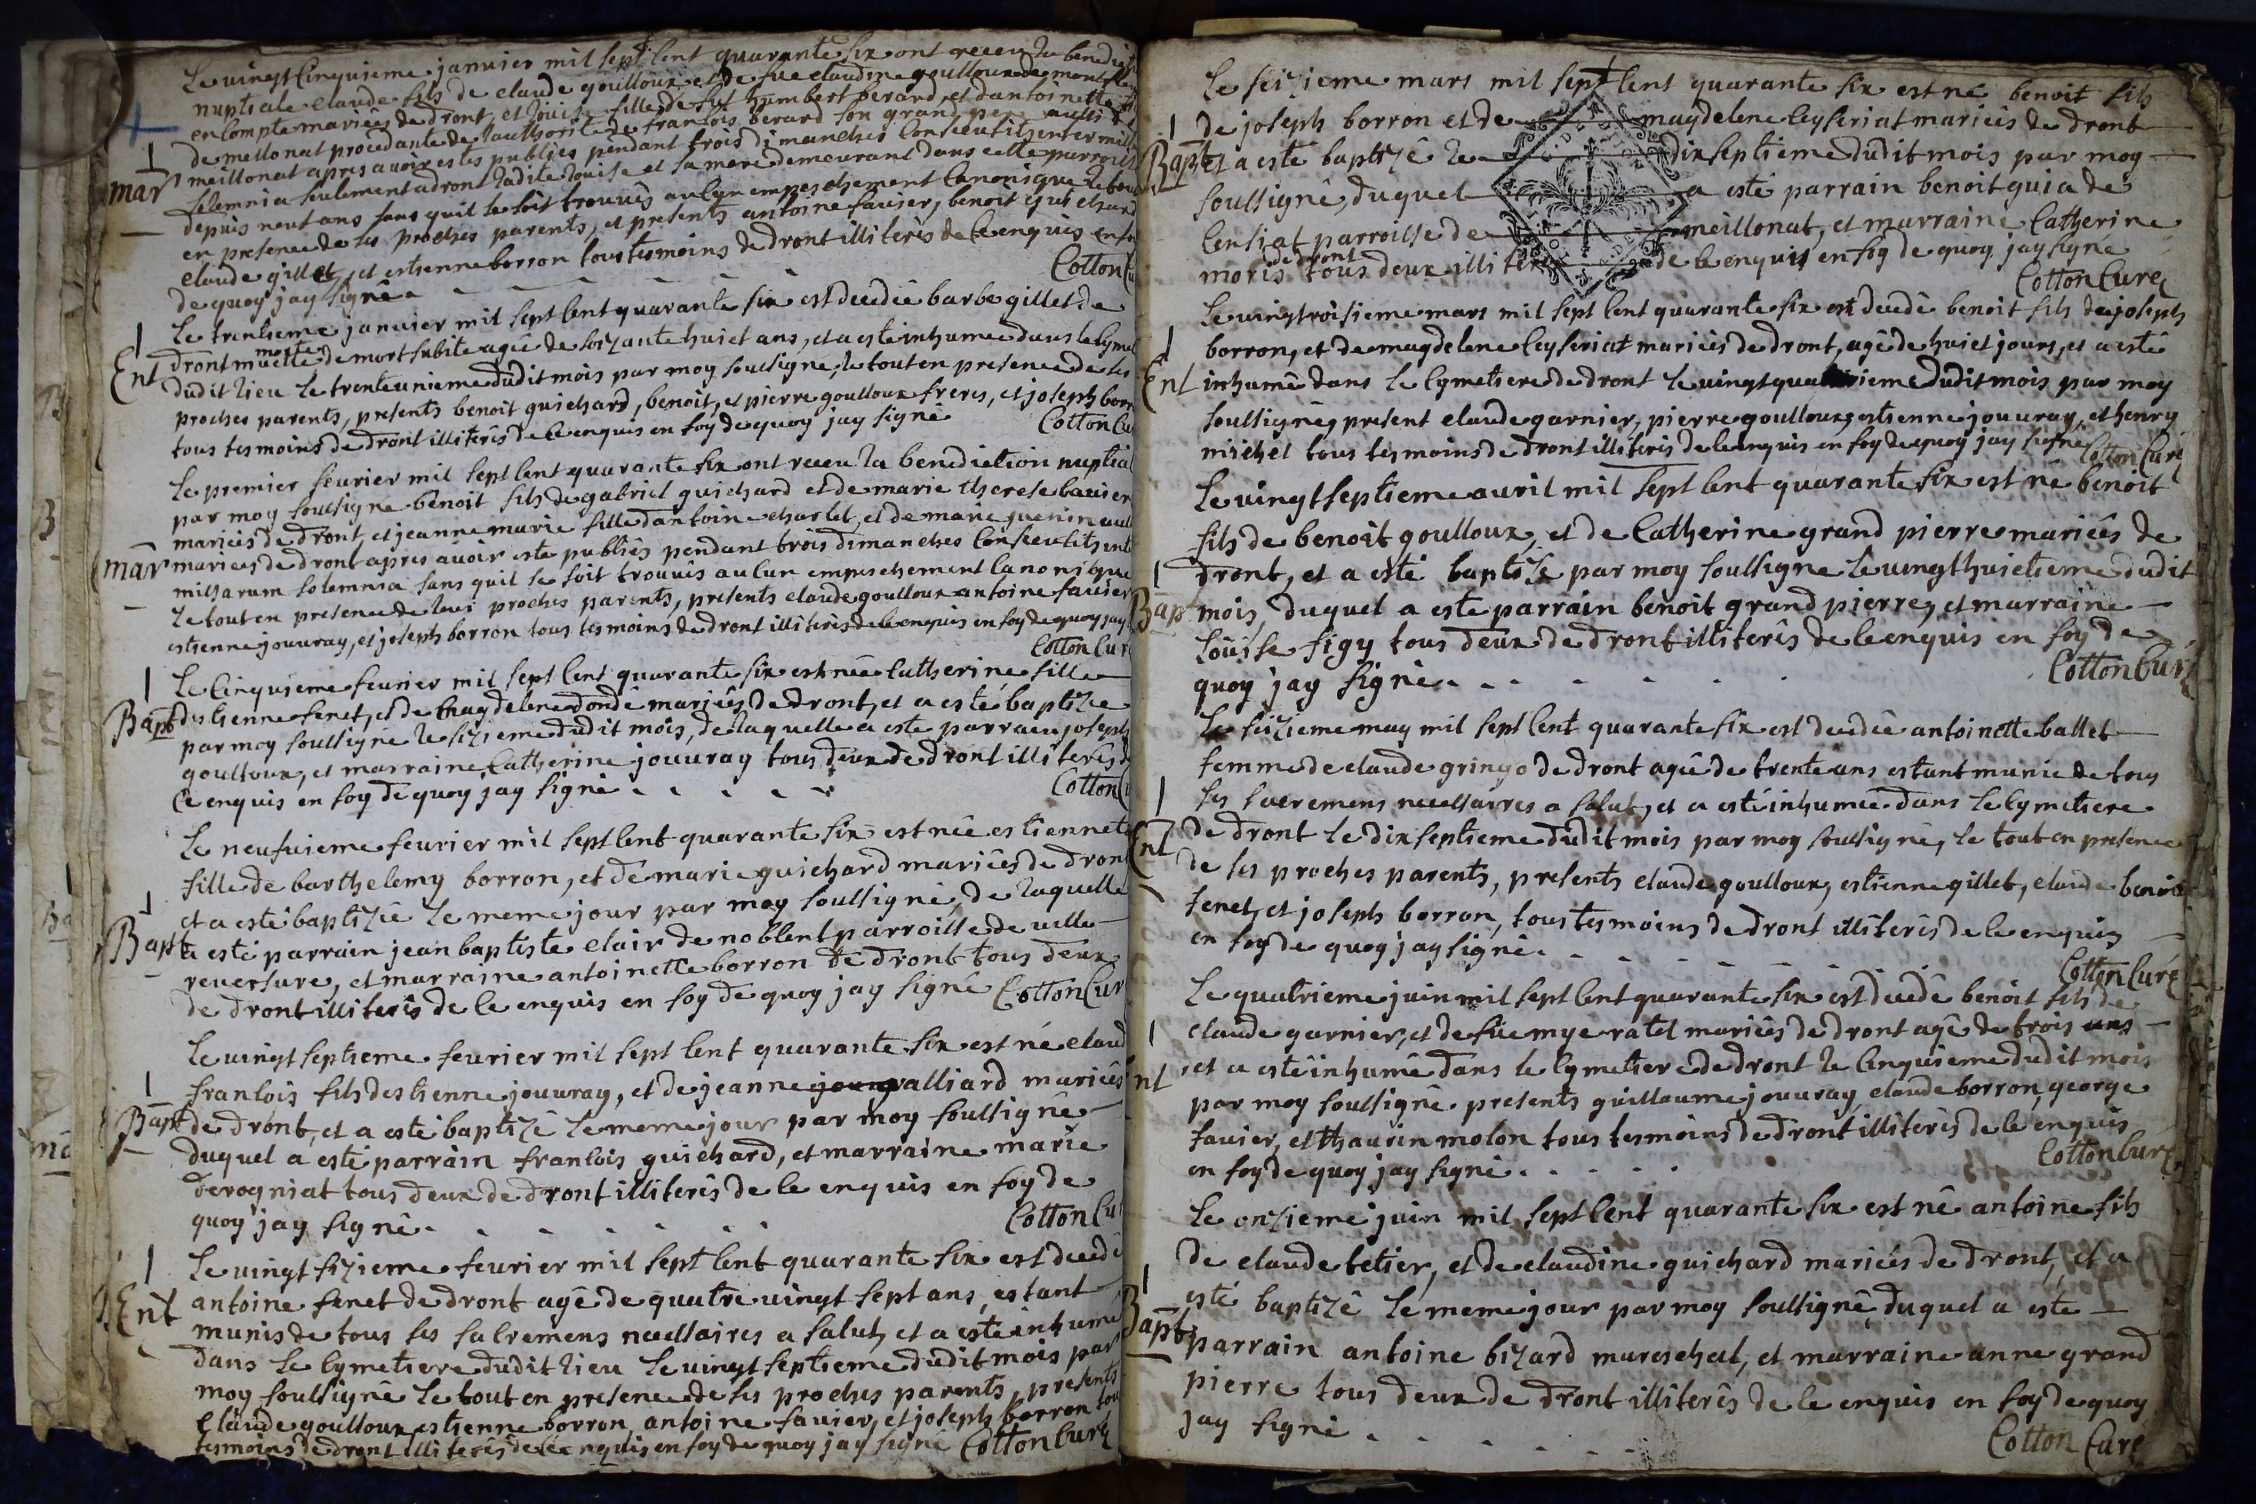 Le vingt cinquieme janvier mil sept cent quarante six ont receu la benedict
nuptiale claude fils de claude goulloux et de fue claudine goulloux de
en compte mariees de dront, et loüise fille de fut humbert berard et dantoinette
de mellonat procedante de lauthorité de francois berard son grand pere
mar meillonat apres avoir estes publies pendant trois dimanches consecutifs enter
solemnia seulement a dront ladite loüise et sa mere demeurant dans cette parroisse
depuis neuf ans sans quil se soit trouvés aulcun empeschement canonique le tout
en presence de ses proches parents, et presents antoine favier, benoit
claude gillet, et estienne borron tous tesmoins de dront illiterés de ce enquis en fo
de quoy jay signé . - - - - - Cotton Cu
Le trentieme janvier mil sept cent quarante six est decedée barbe gillet de
Ent dront müette morte de mort subite agée de soizante huict ans, et a esté inhumée dans le cyme
dudit lieu le trente unieme dudit mois par moy soussigné, le tout en presence de ses
proches parents, presents benoit guichard, benoit, et pierre goulloux freres, et joseph borr
tous tesmoins de dront illiterés de ce enquis en foy de quoy jay signé Cotton Cu
Le premier fevrier mil sept cent quarante six ont receu la benediction nuptial
par moy soussigné benoit fils de gabriel guichard et de marie therese
mariées de dront, et jeanne marie fille dantoine charlet, et de marie
mar mariees de dront apres avoir esté publiés pendant trois dimanches consecutifs inte
missarum solemnia sans quil se soit trouvés aulcun empeschement canonique
le tout en presence de leurs proches parents, presents claude goulloux antoine favier
estienne jouvray, et joseph borron tous tesmoins de dront illiterés de ce enquis en foy de quoy jay
Cotton Cur
Le cinquieme fevrier mil sept cent quarante six est née catherine fille
Bapt destienne fenet, et de magdelene dondé mariées de dront, et a esté baptizée
par moy soussigné le sizieme dudit mois, de laquelle a esté parrain joseph
goulloux, et marraine catherine jouvray tous deux de dront illiterés d
ce enquis en foy de quoy jay signé . . . . . Cotton C
Le neufvieme fevrier mil sept cent quarante six est née estiennet
fille de barthelemy borron, et de marie guichard mariées de dron
et a esté baptizée le meme jour par moy soussigné, de laquelle
Bapt a esté parrain jean baptiste clair de noblent parroisse de ville
reversure, et marraine antoinette borron de dront tous deux
de dront illiterés de ce enquis en foy de quoy jay signé Cotton Cur
Le vingt septieme fevrier mil sept cent quarante six est né claud
francois fils destienne jouvray, et de jeanne alliard mariées
Bapt de dront, et a esté baptizé le meme jour par moy soussigné
duquel a esté parrain francois guichard, et marraine marie
derogniat tous deux de dront illiterés de ce enquis en foy de
quoy jay signé . - - - - - Cotton Cu
Le vingt sizieme fevrier mil sept cent quarante six est decedé
Ent antoine fenet de dront agé de quatre vingt sept ans, estant
munis de tous ses sacremens necessaires a salut, et a esté inhumé
dans le cymetiere dudit lieu le vingt septieme dudit mois par
moy soussigné le tout en presence de ses proches parents, presents
claude goulloux estienne borron, antoine favier, et joseph borron tou
tesmoins de dront illiterés de ce enquis en foy de quoy jay signé Cotton Curé
Le seizieme mars mil sept cent quarante six est né benoit fils
de joseph borron et de magdelene ceyseriat mariées de dront
Bapt et a esté baptizé le dixseptieme dudit mois par moy
soussigné, duquel a esté parrain benoit guia de
Censiat parroisse de meillonat, et marraine catherine
moris de dront tous deux illiterés de ce enquis en foy de quoy jay signé
Cotton Curé
Le vingtroisieme mars mil sept cent quarante six est decedé benoit fils de joseph
borron, et de magdelene ceyseriat mariées de dront, agé de huict jours, et a esté
Ent inhumé dans le cymetiere de dront le vingt quatrieme dudit mois par moy
soussigné, present claude garnier, pierre goulloux, estienne jouvray, et henry
michel tous tesmoins de dront illiterés de ce enquis en foy de quoy jay signé Cotton Curé
Le vingt septieme avril mil sept cent quarante six est né benoit
fils de benoit goulloux, et de catherine grand pierre mariées de
dront, et a esté baptizé par moy soussigné le vingthuictieme dudit
Bap mois, duquel a esté parrain benoit grand pierre, et marraine
loüise figy tous deux de dront illiterés de ce enquis en foy de
quoy jay signé . . . . . . Cotton Curé
Le seizieme may mil sept cent quarante six est decedée antoinette ballet
femme de claude gringo de dront agée de trente ans estant munie de tous
ses sacremens necessaires a salut, et a esté inhumée dans le cymetiere
Ent de dront le dixseptieme dudit mois par moy soussigné, le tout en presence
de ses proches parents, presents claude goulloux, estienne gillet, claude benoit
fenet, et joseph borron, tous tesmoins de dront illiterés de ce enquis
en foy de quoy jay signé . - - - - - Cotton Curé
Le quatrieme juin mil sept cent quarante six est decedé benoit fils de
claude garnier, et de füe mye ratel mariées de dront agé de trois ans
Ent et a esté inhumé dans le cymetiere de dront le cinquieme dudit mois
par moy soussigné presents guillaume jouvray, claude borron, george
favier, et thaurin molon tous tesmoins de dront illiterés de ce enquis
en foy de quoy jay signé . . . . . Cotton Curé
Le onzieme juin mil sept cent quarante six est né antoine fils
de claude tetier, et de claudine guichard mariées de dront, et a
esté baptizé le meme jour par moy soussigné, duquel a esté
Bapt parrain antoine bizard mareschal, et marraine anne grand
pierre tous deux de dront illiterés de ce enquis en foy de quoy
jay signé . . . . . . Cotton Curé